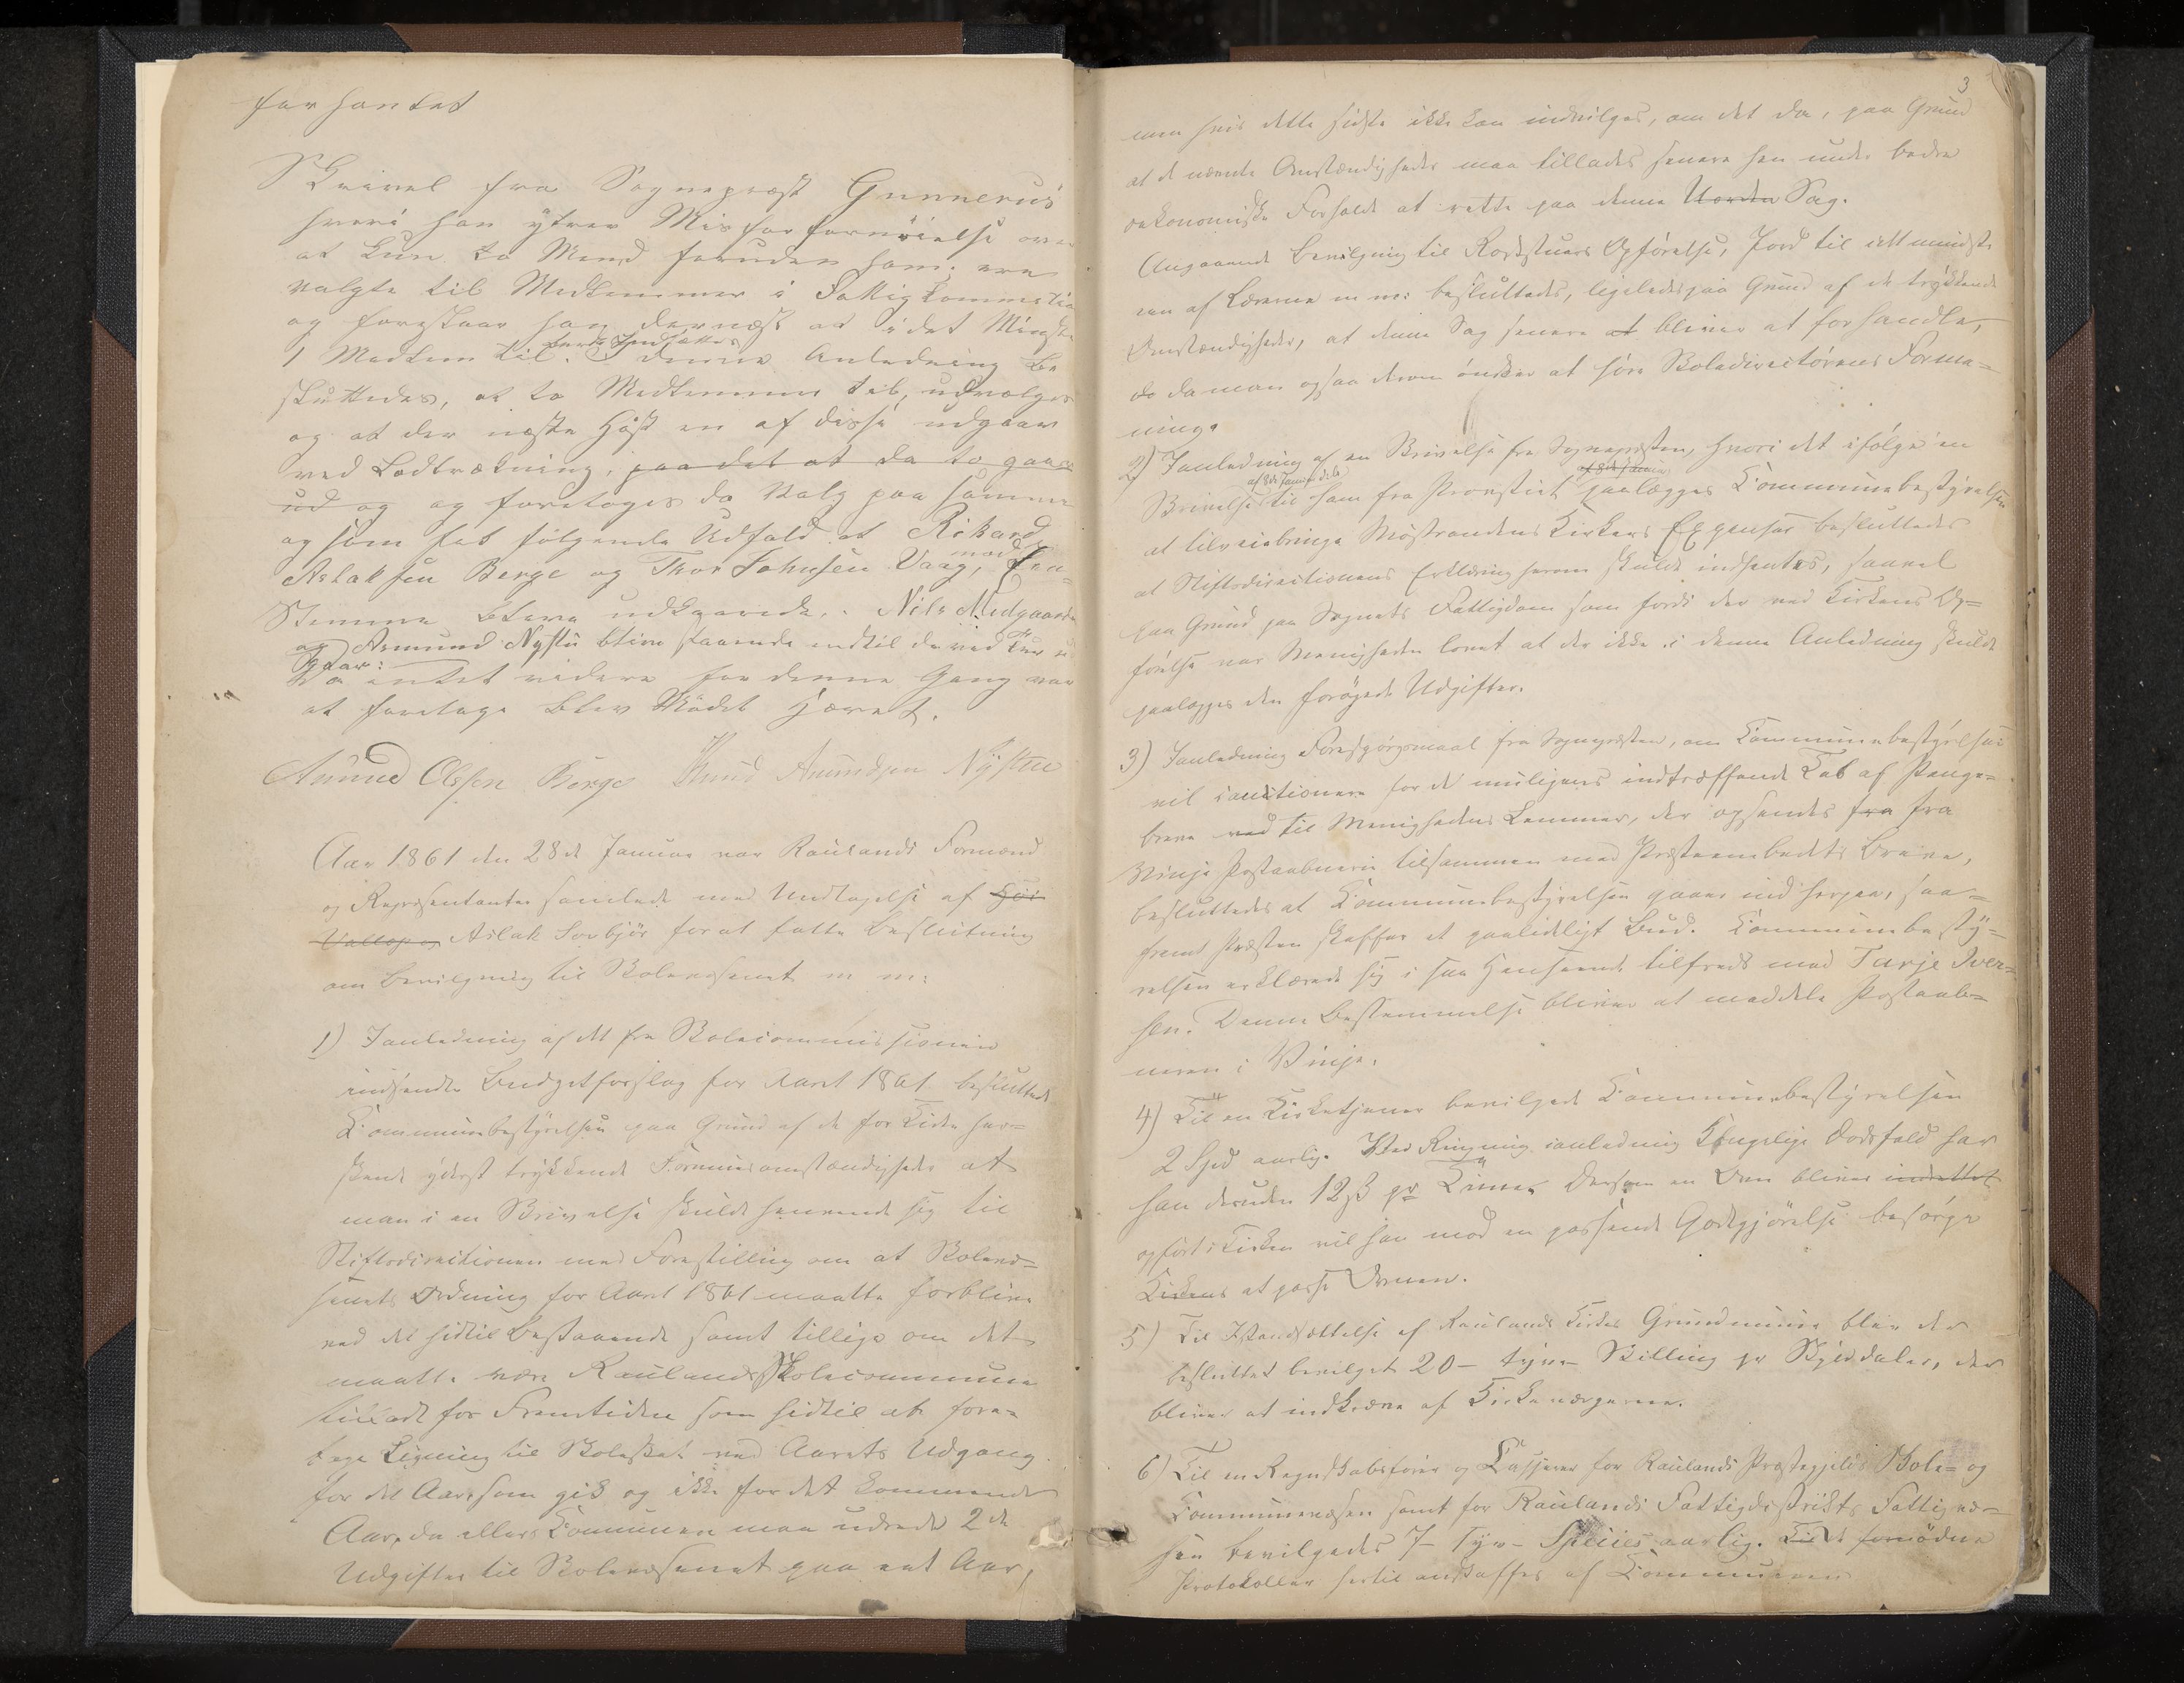 forhandlet
Skrivel fra Sognepræst Gunnerus
hvori han ytrer Misforfornöielse over
at kun to Mænd foruden ham ere
valgte til Medlemmer i Fattigkommission
og foreslaar han dernæst at i det Mindste
1 Medlem til. I denne Anledning be
sluttedes, at to Medlemmer til, udvælges
og at der næste Höst en af disse udgaar
ved Lodtrækning, paa det at da to gaar
ud og og foretoges da Valg paa samme
og som fik fölgende Udfald at Rikard
Aslaksen Berge og Thor Johnsen Vaag, med Een
Stemme bleve udkaarede. Nils Midgaarden
og Asmund Nystu blive staaende indtil de ved Tur ud
gaar:
Da intet videre for denne Gang var
at foretage blev Mödet hævet.
Amund Olssen Berge Knud Amundsen Nystue
Aar 1861 den 28de Januar var Raulands Formænd
og Repræsentanter samlede med Undtagelse af
Aslak Lovbjör for at fatte Beslutning
om Bevilgning til Skolevæsenet m m:
1) I anledning af det fra Skolecommissionen
indsendte Budgetforslag for Aaret 1861 besluttede
Communebestyrelsen paa Grund af de for Tiden her=
skende yderst trykkende Formuesomstændigheder at
man i en Skrivelse skulde henvende sig til
Stiftsdirectionen med Forestilling om at Skolevæ=
senets Ordning for Aaret 1861 maatte forblive
ved det hidtil Bestaaende samt tillige om det
maatte være Raulands Skolecommune
tilladt for Fremtiden som hidtil at fore=
tage Ligning til Skoleskat ved Aarets Udgang
for det Aar, som gik og ikke for det kommende
Aar, da ellers Communen maa udrede 2de
Udgifter til Skolevæsenet paa eet Aar,
3
men hvis dette sidste ikke kan indvilges, om det da, paa Grund
at de nævnte Omstændigheder maa tillades senere hen under bedre
oekonomiske Forholde at rette paa denne Uorden Sag.
Angaaende Bevilgning til Rodestuers Opförelse, Jord til idetmindste
een af Lærerne m m: besluttedes, ligeledes paa Grund af de trykkende
Omstændigheder, at denne Sag senere at bliver at forhandle,
da man ogsaa derom önsker at höre Skoledirectörens Forme=
ning.
2) I anledning af en Skrivelse fra Sognepræsten, hvori det ifölge en
Skrivelse til ham fra Provstiet paalægges Communebestyrelsen
at tilveiebringe Möstrandens Kirkers Expenser besluttedes
at Stiftsdirectionens Erklæring herom skulde indhentes, saavel
paa Grund paa Sognets Fattigdom som fordi der ved Kirkens Op=
förelse var Menigheden lovet at der ikke i denne Anledning skulde
paalægges den forögede Udgifter.
3) I anledning Forespörgsmaal fra Sognepræsten, om Communebestyrelsen
vil cautionere for de muligens indtræffende Tab af Penge=
breve ved til Menighedens Lemmer, der opsendes fra fra
Vinje Postaabneri tilsammen med Præsteembedets Breve,
besluttedes at Communebestyrelsen gaaer ind herpaa, saa=
fremt Præsten skaffer et paalideligt Bud. Communebesty=
relsen erklærede sig i saa Henseende tilfreds med Tarje Iver=
sen. Denne Bestemmelse bliver at meddele Postaab=
neren i Vinje.
4) Til en Kirketjener bevilgede Communebestyrelsen
2 Spd aarlig. Ved Ringning ianledning Kongelige Dödsfald har
han desuden 12 ß pr Time. Dersom en Ovn bliver indrettet
opfört i Kirken vil han mod en passende Godtgjörelse besörge
Kirkens at passe Ovnen.
5) Til Istandsættelse af Raulands Kirkes Grundmuur blev der
besluttet bevilget 20 - tyve - Skilling pr Skylddaler, der
bliver at indkræve af Kirkeværgerne.
6) Til en Regnskabsförer og Casserer for Raulands Præstegjelds Skole= og
Communevæsen samt for Raulands Fattigdistrikts Fattigvæ=
sen bevilgedes 7 - Syv - Species aarlig. De fornödne
Protokoller hertil anskaffes af Communen